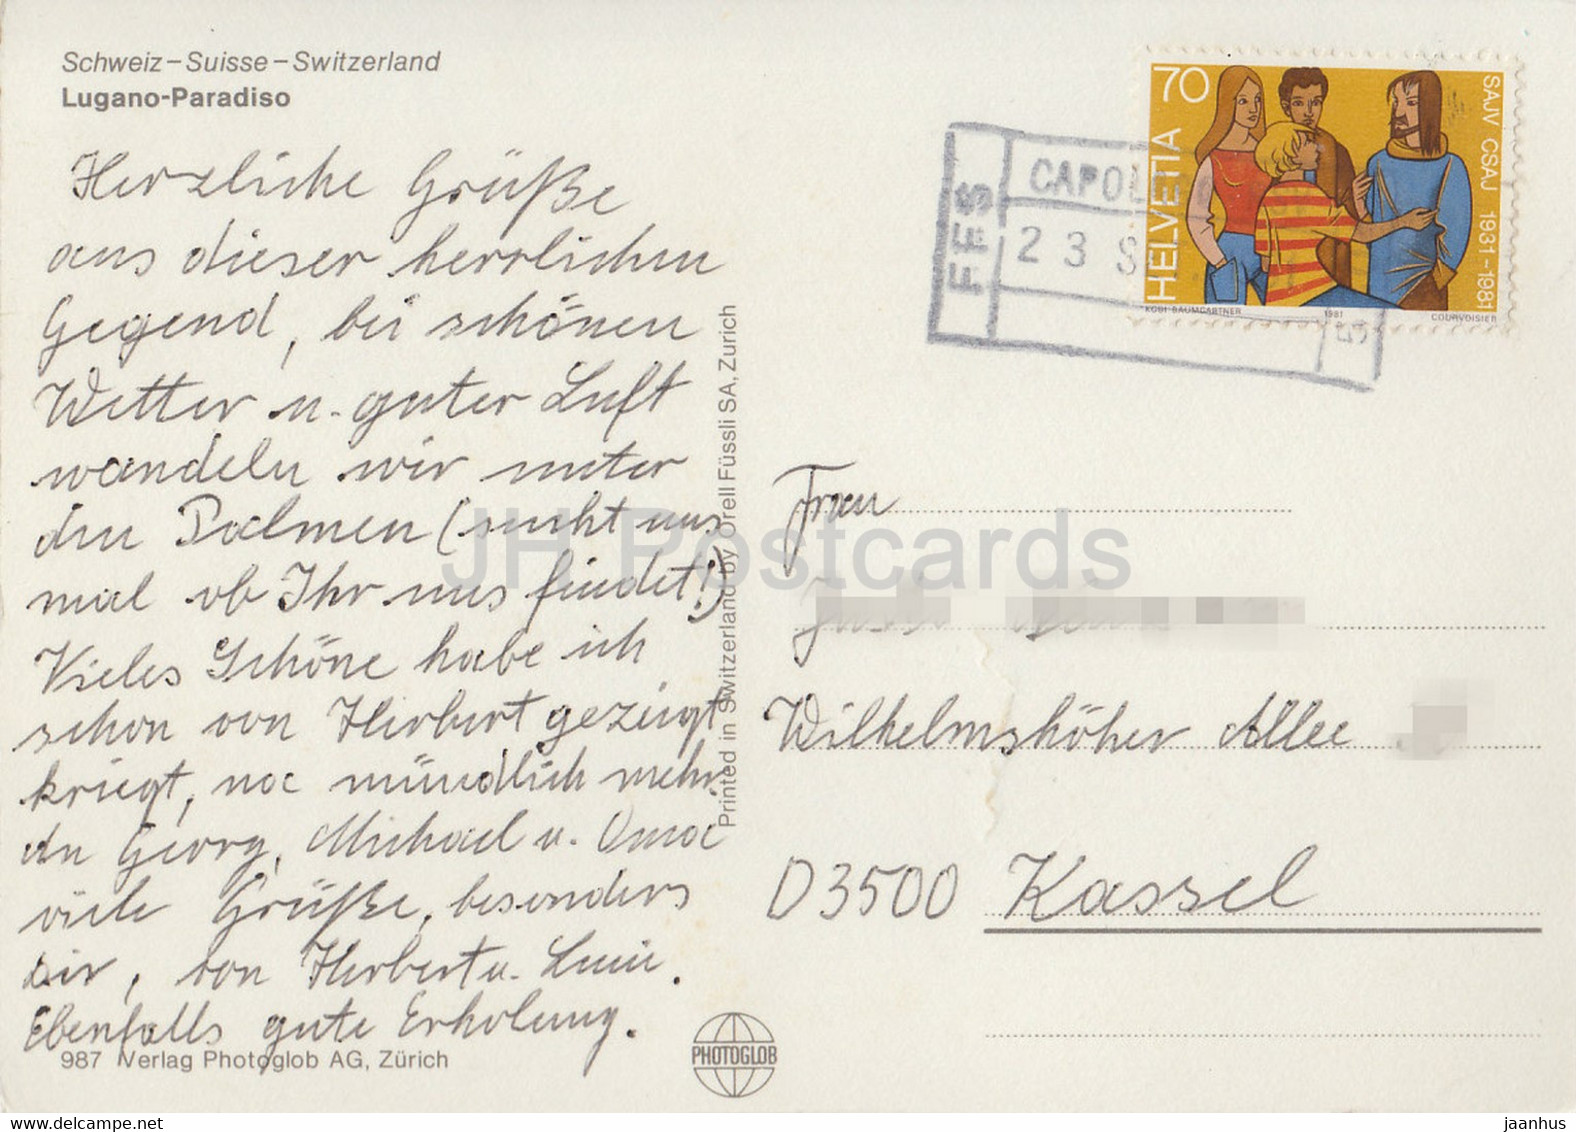 Schweiz – Suisse – Switzerland
Lugano-Paradiso
Herzliche Grüße
aus dieser herrlichen
Gegend, bei schönen
Wetter u. guter Luft
wandeln wir unter
den Palmen (sucht uns
mal ob Ihr uns findet!)
Vieles Schöne habe ich
schon von Herbert gezeigt
kriegt, na mündlich mehr
an Georg, Michael u. Oma
viele Grüße, besonders
Dir, von Herbert u.
Ebenfalls gute Erholung.
987 Verlag Photoglob AG, Zürich
PHOTOGLOB
Printed in Switzerland by Orell Füssli SA, Zurich
FFS
CAPOL
23 S
70
HELVETIA
SAJV CSAJ 1931–1981
KOBI BAUMGARTNER 1981 COURVOISIER
Frau
Wilhelmshöher Allee
D 3500 Kassel
JH Postcards
www.delcampe.net
jaanhus